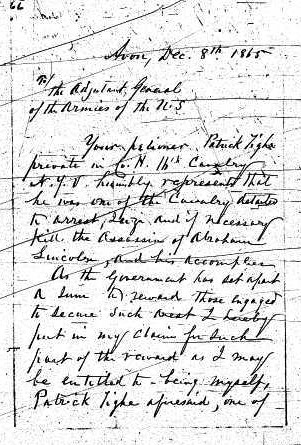 Avon, Dec. 8th 1865
To
the Adjutant General
of the Armies of the U.S
Your petitioner Patrick Tighe
private in Co. H. 16th Cavalry
N.Y.V. humbly represents that
he was one of the Cavalry detailed
to arrest, Seize and if necessary
kill the Assassin of Abraham
Lincoln, and his accomplices
As the Government has set apart
a Sum to reward those engaged
to secure such arrest I hereby
put in my Claim for such
part of the reward as I may
be entitled to - being myself,
Patrick Tighe aforesaid, one of